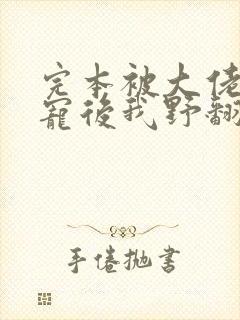 完本被大佬
寵後我野翻
手倦拋書